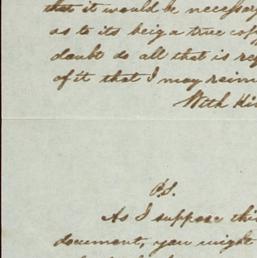 that it would be necessary
as to its beig a true copy
doubt do all that is re
of it that I may reim
With Kin
P.S.
As I suppose this
document, you might